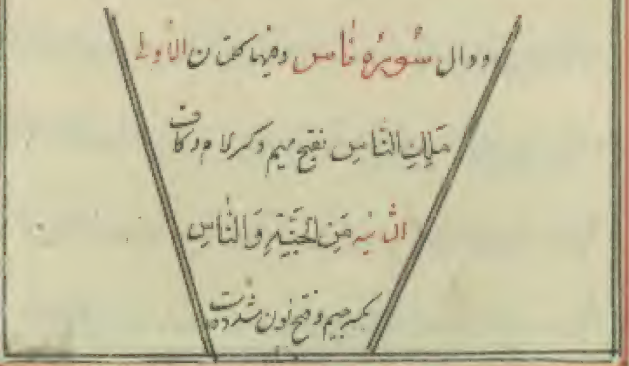 ودال سُورَةِ نَاس وفیها کلمتان الأولى
مَلِكِ النَّاسِ بفتح میم وکسر لام وکاف
الثانیه مِنَ الجِنَّةِ وَالنَّاسِ
بکسر جیم وفتح نون مشدده است